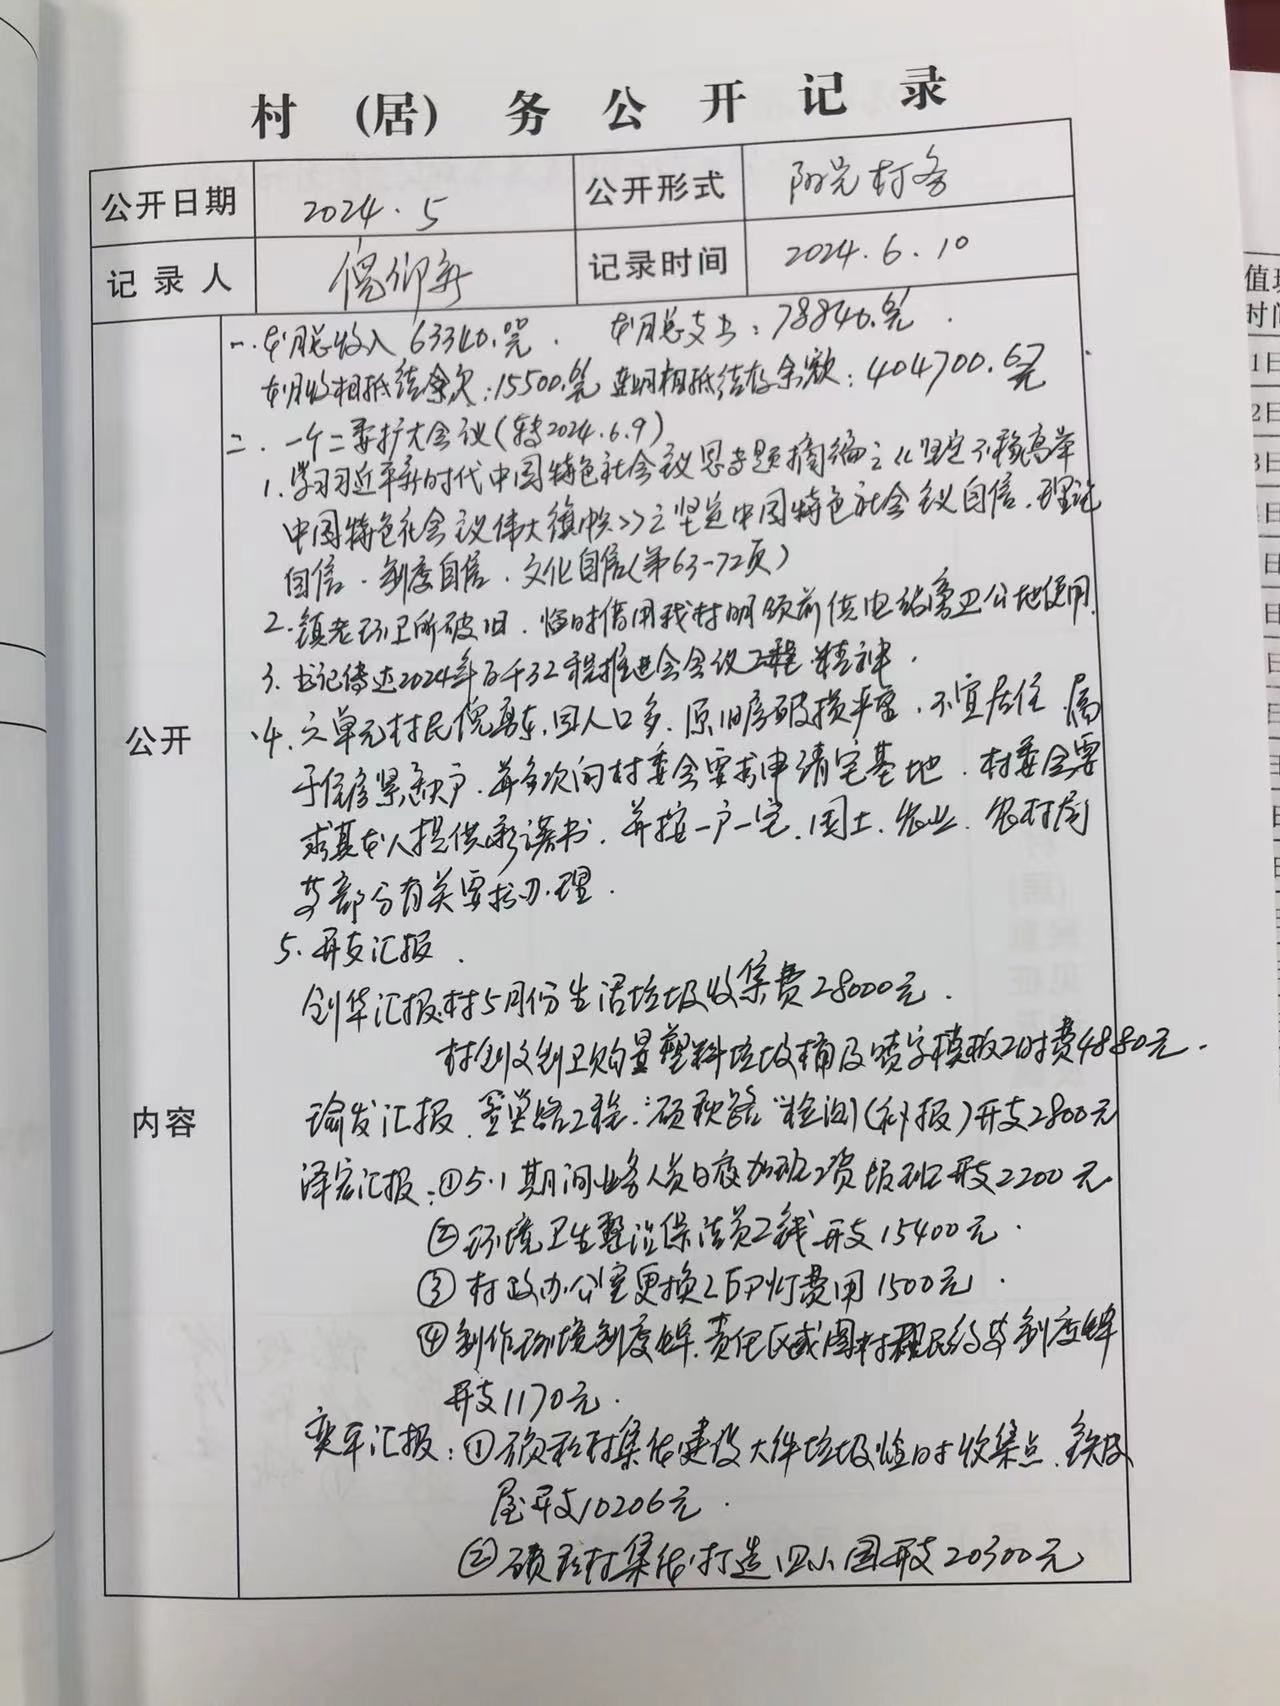 村（居）务公开记录
公开日期 2024.5 公开形式 阳光村务
记录人 记录时间 2024.6.10
公开
内容
一.本月总收入 63340.元. 本月总支出:78840.元.
本月收相抵结余欠:15500.元 期相抵结存余额:404700.67元
二.一个二委扩大会议(2024.6.9)
1.学习习近平新时代中国特色社会议思专题摘编之《坚定不移高举
中国特色社会议伟大旗帜》之坚定中国特色社会议自信.理论
自信.制度自信.文化自信(第63-72页)
2.镇老环卫所破旧.临时借用我村明颂前供电站旁卫公地使用.
3.书记传达2024年百千万工程推进会会议工程精神.
4.六单元村民倪 东,因人口多.原旧房破损严重.不宜居住.属
于住房紧缺户.并多次向村委会要求申请宅基地.村委会要
求其本人提供承诺书.并按一户一宅.国土.农业.农村局
等部分有关要求办理.
5.开支汇报.
创华汇报:村5月份生活垃圾收集费28000元.
村创文创卫购置塑料垃圾桶及喷字模板工时费4880元.
瑜发汇报. 路工程:硕秋路"检测(利报)开支2800元
泽宏汇报:①5.1期间业务人员日夜加班工资 班开支2200元
②环境卫生整治保洁员工钱开支15400元.
③村政办公室更换LED灯费用1500元.
④制作环境制度牌.责任区域图村规民约等制度牌
开支1170元.
奕平汇报:①硕秋村集体建设大件垃圾临时收集点.铁皮
屋开支10206元.
②硕秋村集体打造四小园开支20300元
值班
时间
1日
2日
3日